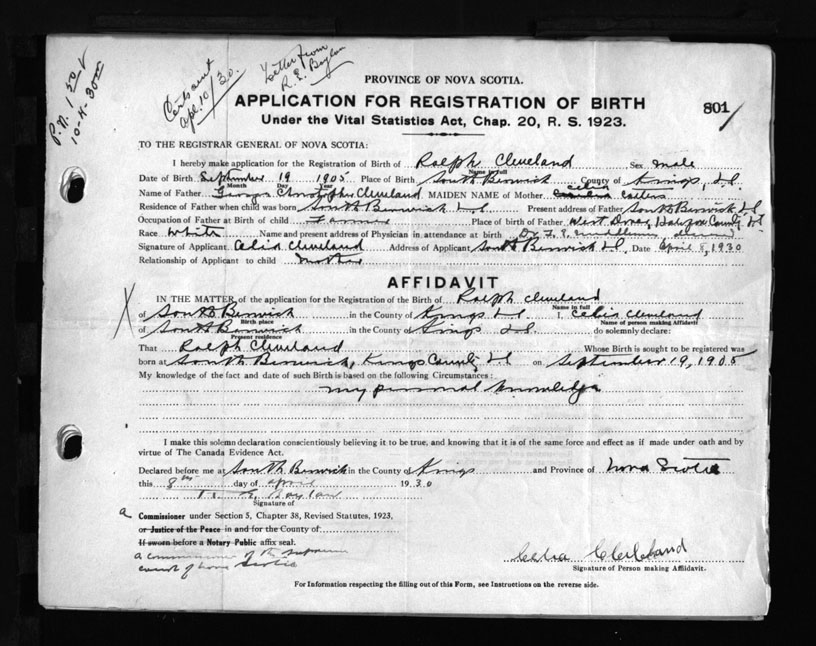 P.N. 1 50
10-4-30
Cert sent
Apl. 10/30.
Letter from
R. E.
PROVINCE OF NOVA SCOTIA.
APPLICATION FOR REGISTRATION OF BIRTH
801
Under the Vital Statistics Act, Chap. 20, R. S. 1923.
TO THE REGISTRAR GENERAL OF NOVA SCOTIA:
I hereby make application for the Registration of Birth of Ralph Cleveland Sex male
Name in full
Date of Birth September 19 1905 Place of Birth South Berwick County of Kings, N.S.
Month Day Year
Name of Father George Christopher Cleveland MAIDEN NAME of Mother Celia
Residence of Father when child was born South Berwick N.S. Present address of Father South Berwick N.S.
Occupation of Father at Birth of child Farmer Place of birth of Father West Halifax County N.S.
Race White Name and present address of Physician in attendance at birth Dr. F. E. deceased
Signature of Applicant Celia Cleveland Address of Applicant South Berwick N.S. Date April 8, 1930
Relationship of Applicant to child mother
AFFIDAVIT
X
IN THE MATTER of the application for the Registration of the Birth of Ralph Cleveland
Name in full
of South Berwick in the County of Kings N.S. I, Celia Cleveland
Birth place Name of person making Affidavit
of South Berwick in the County of Kings N.S. do solemnly declare:
Present residence
That Ralph Cleveland Whose Birth is sought to be registered was
born at South Berwick, Kings County N.S. on September 19, 1905
My knowledge of the fact and date of such Birth is based on the following Circumstances:
my personal knowledge
I make this solemn declaration conscientiously believing it to be true, and knowing that it is of the same force and effect as if made under oath and by
virtue of The Canada Evidence Act.
Declared before me at South Berwick in the County of Kings and Province of Nova Scotia
this 8th day of April 1930
Signature of
a Commissioner under Section 5, Chapter 38, Revised Statutes, 1923,
or Justice of the Peace in and for the County of
If sworn before a Notary Public affix seal.
a commissioner of the supreme
court of Nova Scotia
Celia Cleveland
Signature of Person making Affidavit.
For Information respecting the filling out of this Form, see Instructions on the reverse side.